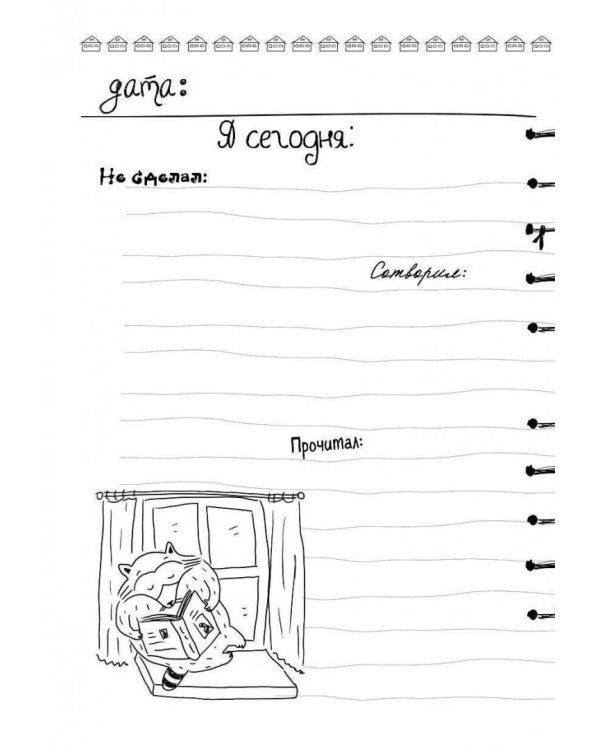 дата:
Я сегодня:
Не сделал:
1
Сотворил:
Прочитал: